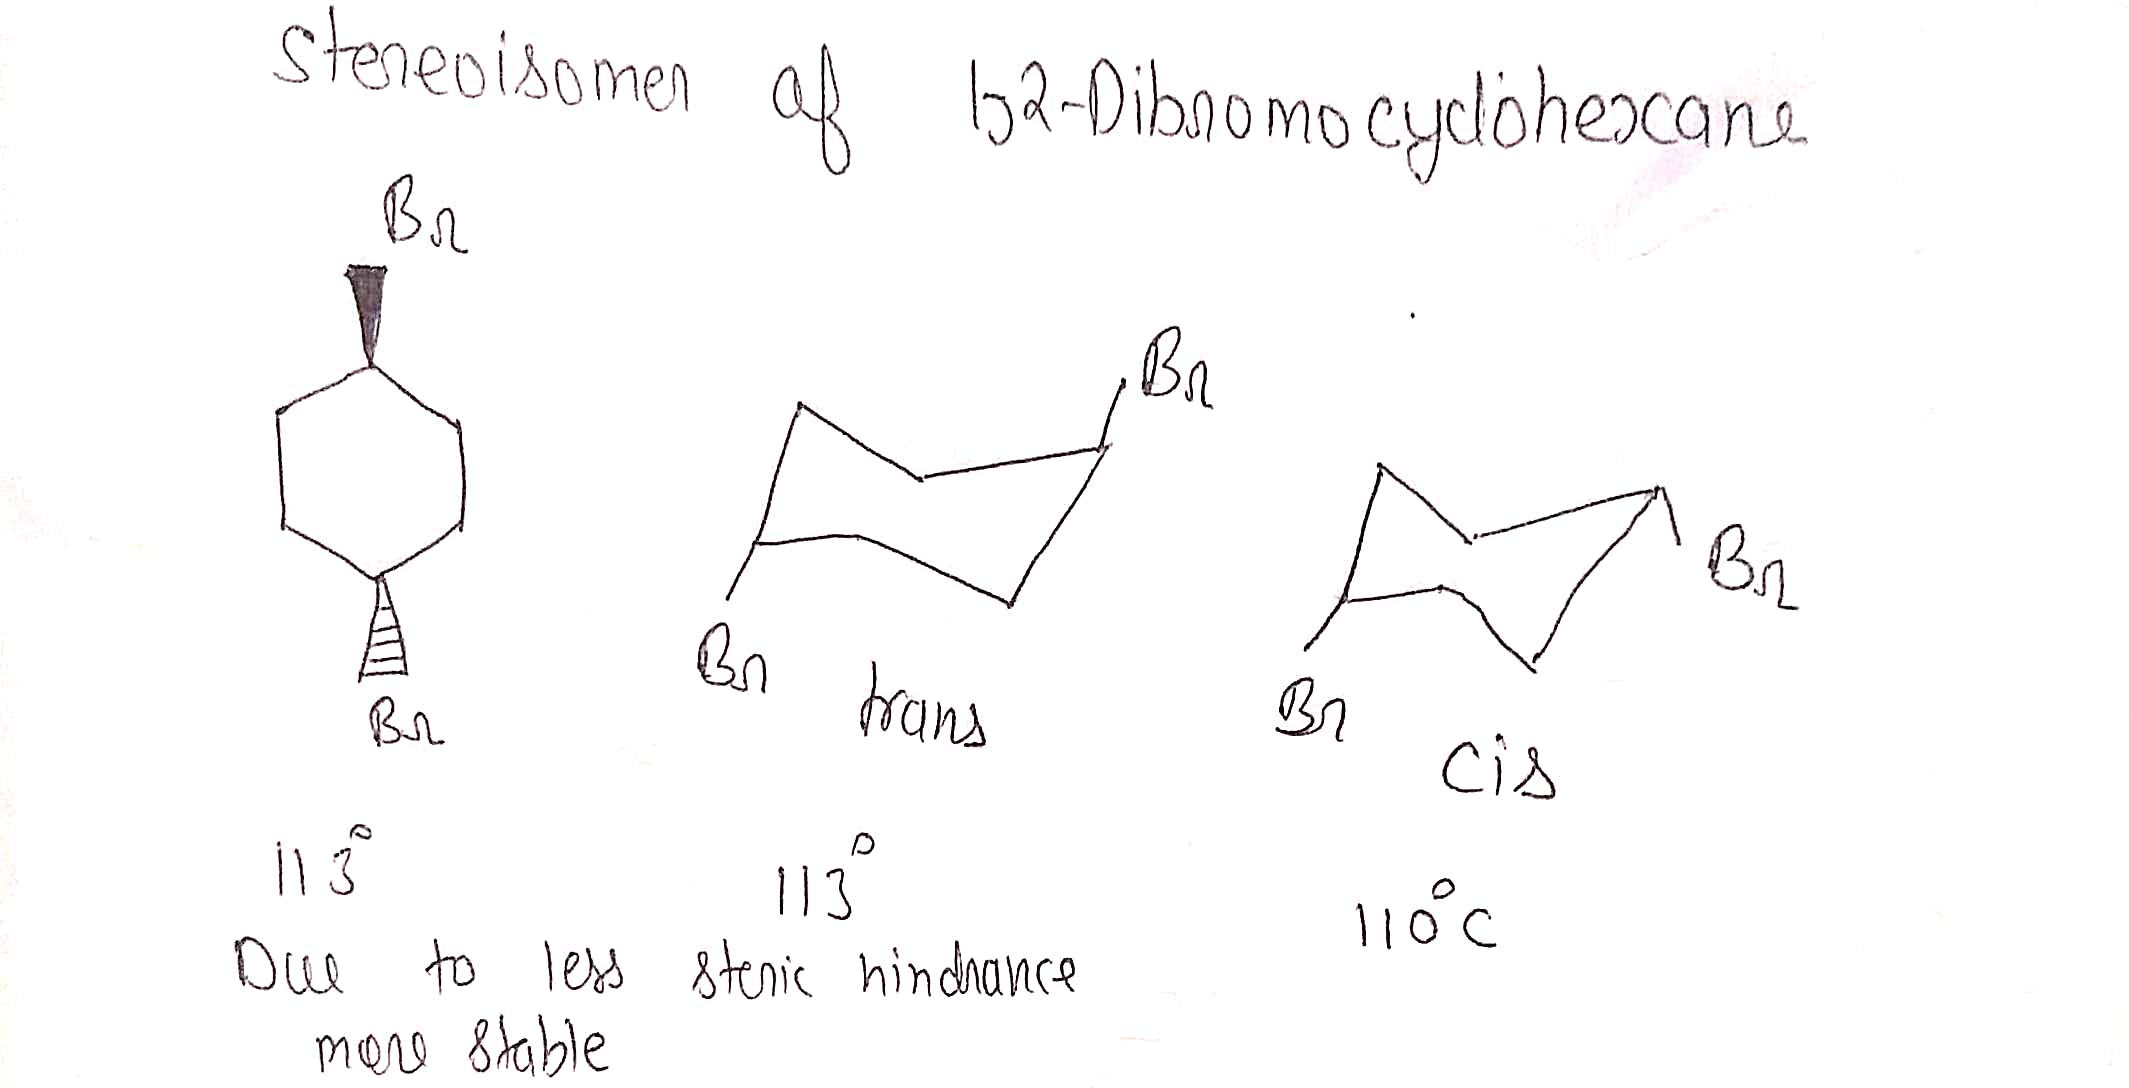 Stereoisomer of 1,2-Dibromocyclohexane
Br
Br
Br
Br
trans
Br
Br
cis
113°
113°
110°C
Due to less steric hindrance
more stable